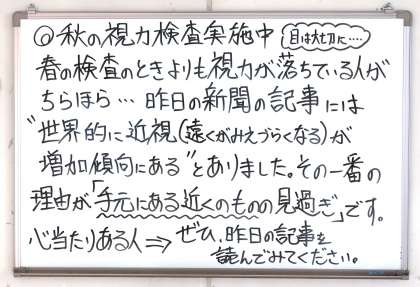 ◎秋の視力検査実施中 目は大切に‥‥
春の検査のときよりも視力が落ちている人が
ちらほら… 昨日の新聞の記事には
"世界的に近視(遠くがみえづらくなる)が
増加傾向にある"とありました。その一番の
理由が「手元にある近くのものの見過ぎ」です。
心当たりある人⇒ ぜひ、昨日の記事を
読んでみてください。